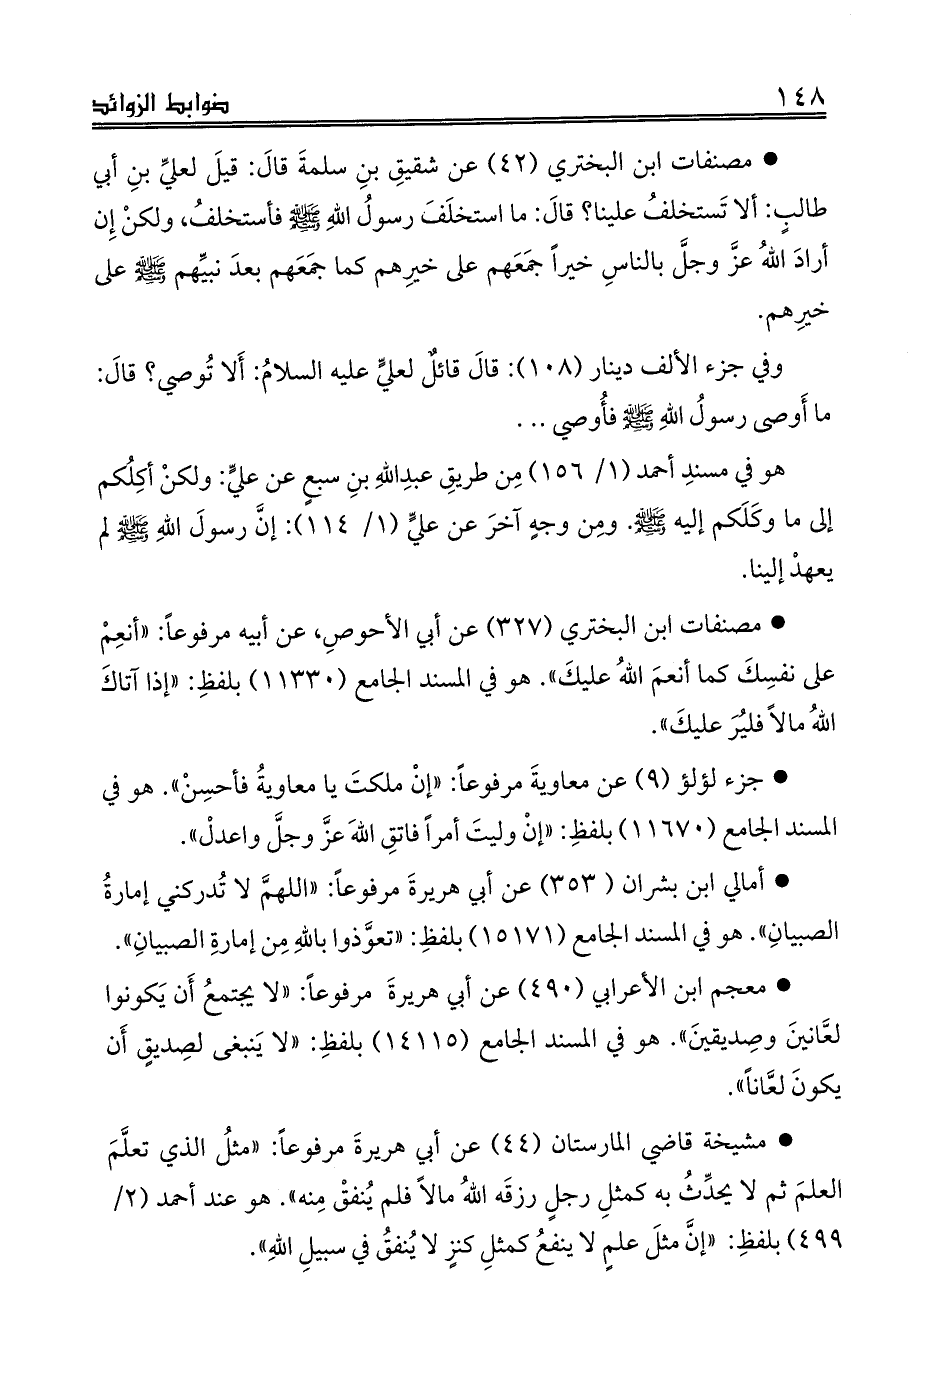 ١٤٨ ضوابط الزوائد
● مصنفات ابن البختري (٤٢) عن شقيقِ بنِ سلمةَ قالَ: قيلَ لعليِّ بنِ أبي
طالبٍ: ألا تَستخلفُ علينا؟ قالَ: ما استخلَفَ رسولُ اللهِ ﷺ فأستخلفُ، ولكنْ إن
أرادَ اللهُ عزَّ وجلَّ بالناسِ خيراً جمَعَهم على خيرِهم كما جمَعَهم بعدَ نبيِّهم ﷺ على
خيرِهم.
وفي جزء الألف دينار (١٠٨): قالَ قائلٌ لعليٍّ عليه السلامُ: أَلا تُوصي؟ قالَ:
ما أَوصى رسولُ اللهِ ﷺ فأُوصي ...
هو في مسندِ أحمد (١/ ١٥٦) مِن طريقِ عبدِاللهِ بنِ سبعٍ عن عليٍّ: ولكنْ أكِلُكم
إلى ما وكَلَكم إليه ﷺ. ومِن وجهٍ آخرَ عن عليٍّ (١/ ١١٤): إنَّ رسولَ اللهِ ﷺ لم
يعهدْ إلينا.
● مصنفات ابن البختري (٣٢٧) عن أبي الأحوصِ، عن أبيه مرفوعاً: «أنعِمْ
على نفسِكَ كما أنعمَ اللهُ عليكَ». هو في المسند الجامع (١١٣٣٠) بلفظِ: «إذا آتاكَ
اللهُ مالاً فليُرَ عليكَ».
● جزء لؤلؤ (٩) عن معاويةَ مرفوعاً: «إنْ ملكتَ يا معاويةُ فأحسِنْ». هو في
المسند الجامع (١١٦٧٠) بلفظِ: «إنْ وليتَ أمراً فاتقِ اللهَ عزَّ وجلَّ واعدلْ».
● أمالي ابن بشران ( ٣٥٣) عن أبي هريرةَ مرفوعاً: «اللهمَّ لا تُدركني إمارةُ
الصبيانِ». هو في المسند الجامع (١٥١٧١) بلفظِ: «تعوَّذوا باللهِ مِن إمارةِ الصبيانِ».
● معجم ابن الأعرابي (٤٩٠) عن أبي هريرةَ مرفوعاً: «لا يجتمعُ أَن يَكونوا
لعَّانينَ وصِديقينَ». هو في المسند الجامع (١٤١١٥) بلفظِ: «لا يَنبغى لصِديقٍ أَن
يكونَ لعَّاناً».
● مشيخة قاضي المارستان (٤٤) عن أبي هريرةَ مرفوعاً: «مثلُ الذي تعلَّمَ
العلمَ ثم لا يحدِّثُ به كمثلِ رجلٍ رزقَه اللهُ مالاً فلم يُنفقْ مِنه». هو عند أحمد (٢/
٤٩٩) بلفظِ: «إنَّ مثلَ علمٍ لا ينفعُ كمثلِ كنزٍ لا يُنفقُ في سبيلِ اللهِ».